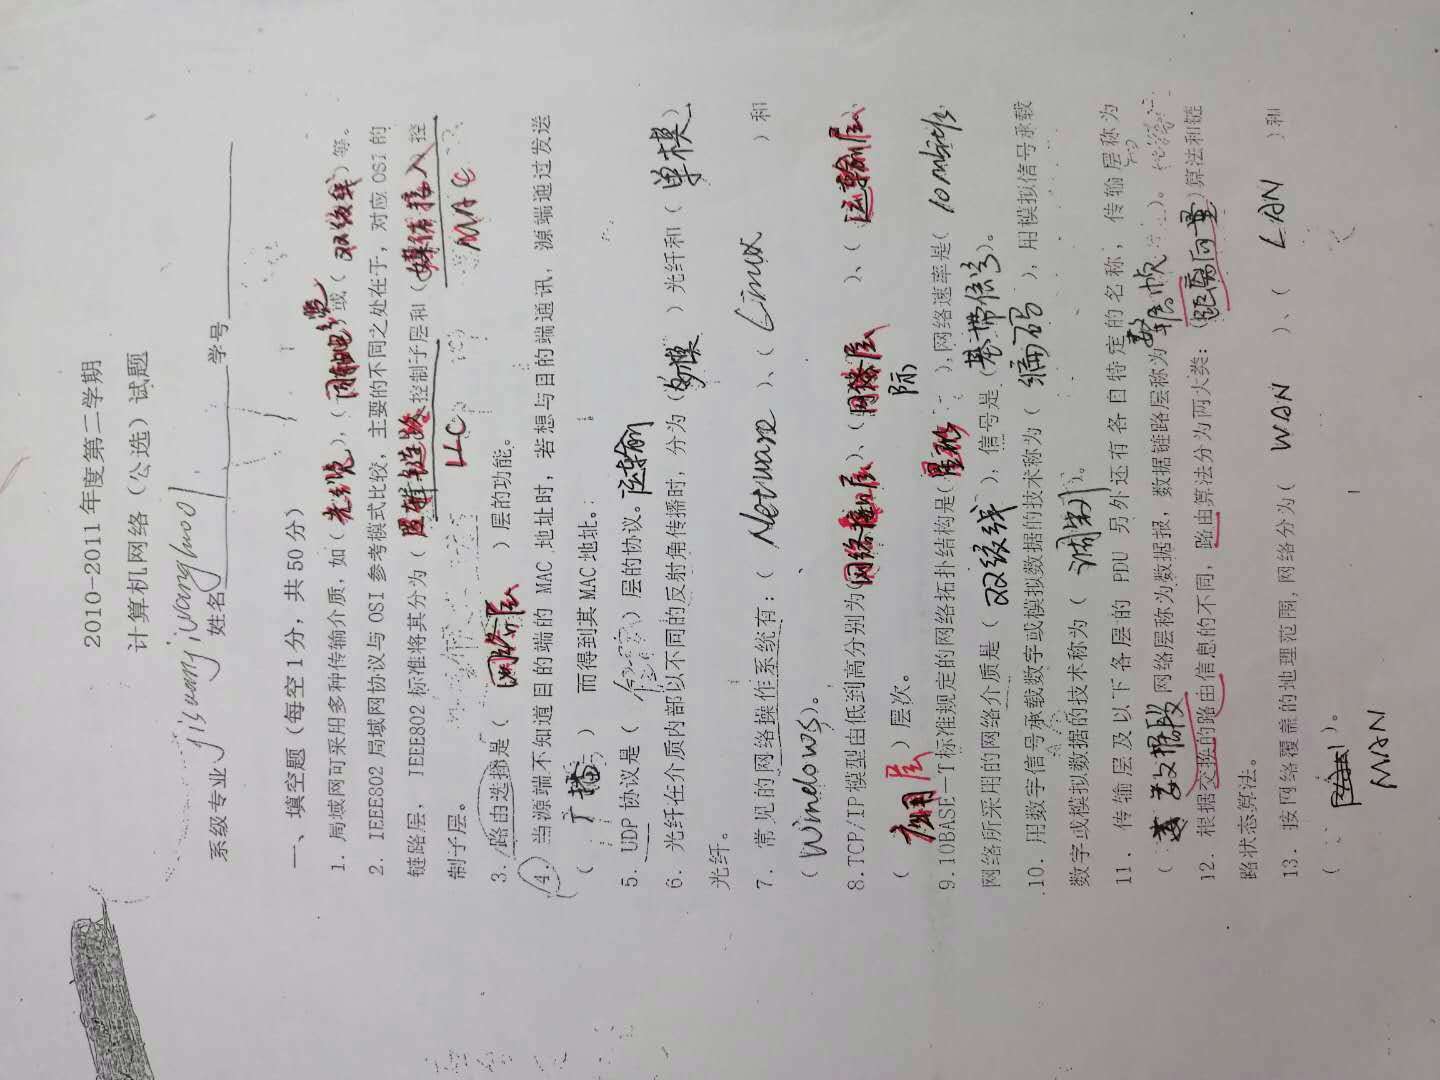 2010-2011年度第二学期
计算机网络（公选）试题
jisuanjiwangluo01
系级专业 姓名 学号
一、填空题（每空1分，共50分）
1．局域网可采用多种传输介质，如（光缆），（同轴电缆）或（双绞线）等。
2．IEEE802局域网协议与OSI参考模式比较，主要的不同之处在于，对应OSI的
链路层， IEEE802标准将其分为（逻辑链路控制子层和（媒体接入）控
制子层。 LLC MAC
3．路由选择是（网络层）层的功能。
4．当源端不知道目的端的 MAC 地址时，若想与目的端通讯，源端通过发送
（广播） 而得到其MAC地址。
5．UDP协议是（ ）层的协议。运输
6．光纤在介质内部以不同的反射角传播时，分为（多模）光纤和（单模）
光纤。
7．常见的网络操作系统有：（Netware）、（Linux）和
（Windows）。
8.TCP/IP模型由低到高分别为(网络接口层)、（网络层）、（运输层
际
（应用层）层次。
9.10BASE－T标准规定的网络拓扑结构是(星形)，网络速率是( 10Mbit/s
网络所采用的网络介质是（双绞线），信号是（基带信号）。
10．用数字信号承载数字或模拟数据的技术称为（编码），用模拟信号承载
数字或模拟数据的技术称为（调制）。
11．传输层及以下各层的 PDU 另外还有各自特定的名称，传输层称为
（数据段 网络层称为数据报，数据链路层称为数据帧）。
12．根据交换的路由信息的不同，路由算法分为两大类：（距离向量）算法和链
路状态算法。
13．按网络覆盖的地理范围,网络分为( WAN )、（ LAN ）和
（ ）。
MAN
1